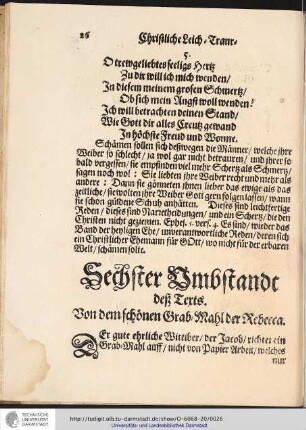 26
Christliche Leich-Traur-
5.
O trewgeliebtes seeligs Hertz
Zu dir will ich mich wenden/
In diesem meinem grosen Schmertz/
Ob sich mein Angst woll wenden?
Ich will betrachten deinen Stand/
Wie Gott dir alles Creutz gewand
In höchste Freud und Wonne.
Schämen sollen sich deßwegen die Männer/ welche ihre
Weiber so schlecht/ ja wol gar nicht betrauren/ und ihrer so
bald vergessen/ sie empfinden viel mehr Schertz als Schmertz/
sagen noch wol: Sie liebten ihre Weiber recht und mehr als
andere: Dann sie gönneten ihnen lieber das ewige als das
zeitliche/ sie wolten ihre Weiber Gott gern folgen lassen/ wann
sie schon güldene Schuh anhätten. Dieses sind leichtfertige
Reden/ dieses sind Narretheidungen/ und ein Schertz/ die den
Christen nicht geziemen. Ephes. 5. vers. 4. Es sind/ wieder das
Band der heyligen Ehe/ unverantwortliche Reden/ deren sich
ein Christlicher Ehemann für Gott/ wo nicht für der erbaren
Welt/ schämen solte.
Sechster Umbstandt
deß Texts.
Von dem schönen Grab-Mahl der Rebecca.
Der gute ehrliche Wittiber/ der Jacob/ richtet ein
Grab-Mahl auff/ nicht von Papier welches
nur
TECHNISCHE
UNIVERSITÄT
DARMSTADT
http://tudigit.ulb.tu-darmstadt.de/show/O-6068-20/0026
Universitäts- und Landesbibliothek Darmstadt